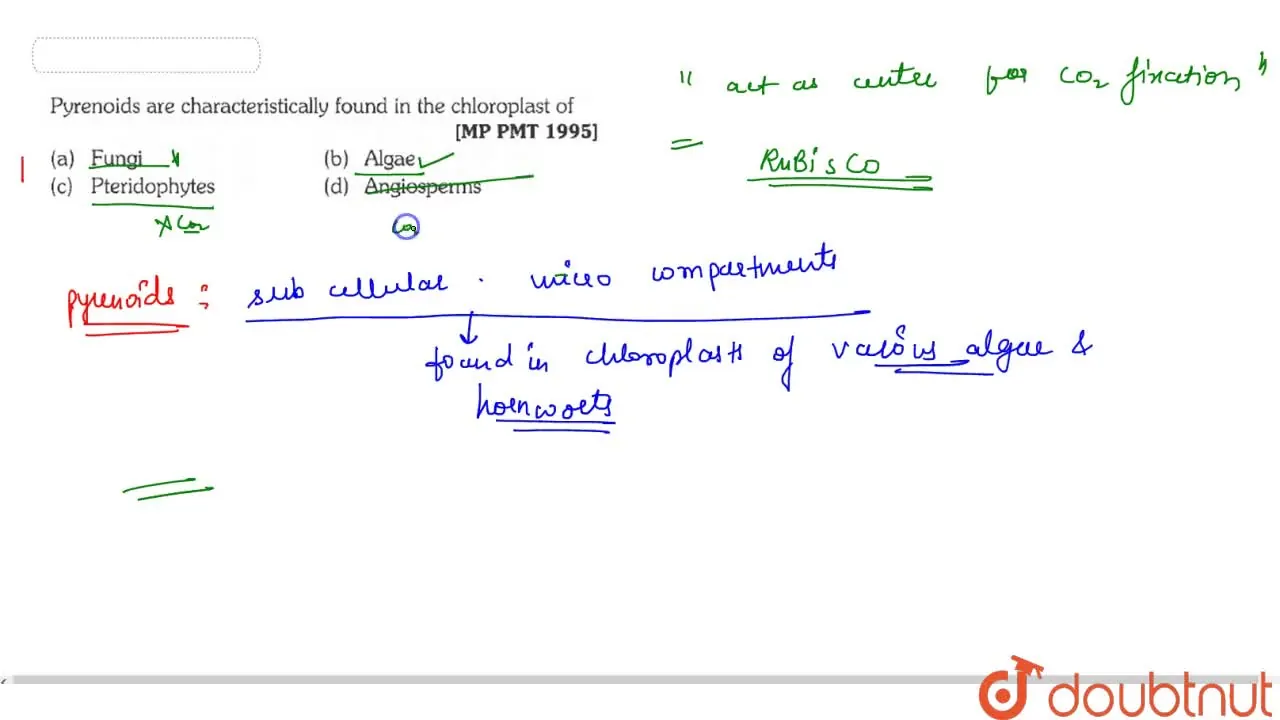 Pyrenoids are characteristically found in the chloroplast of
[MP PMT 1995]
(a) Fungi (b) Algae
(c) Pteridophytes (d) Angiosperms
CO2
CO2
" act as center for CO2 fixation "
RuBisCO
pyrenoids : sub cellular . micro compartments
found in chloroplasts of various algae &
hornworts
doubtnut